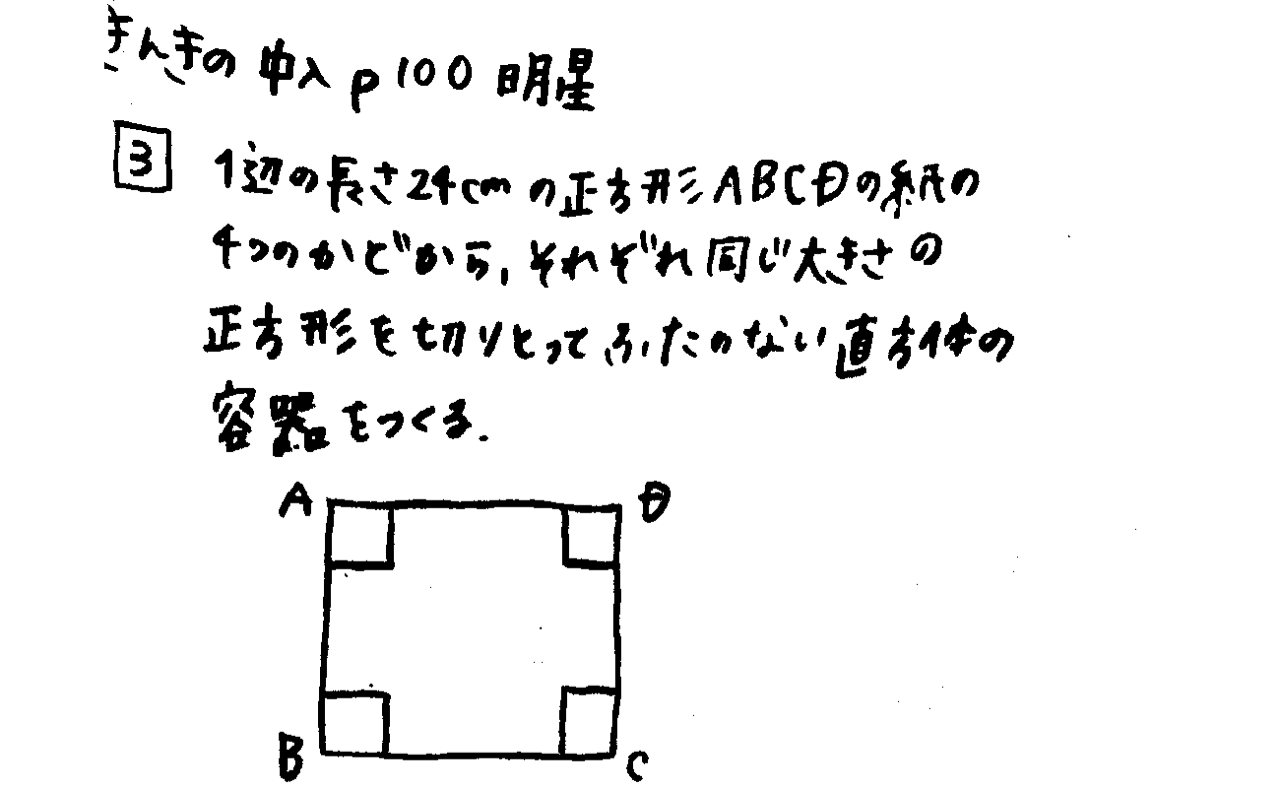 きんきの中入 p100 明星
3 1辺の長さ24cmの正方形ABCDの紙の
4つのかどから,それぞれ同じ大きさの
正方形を切りとってふたのない直方体の
容器をつくる.
A D
B C